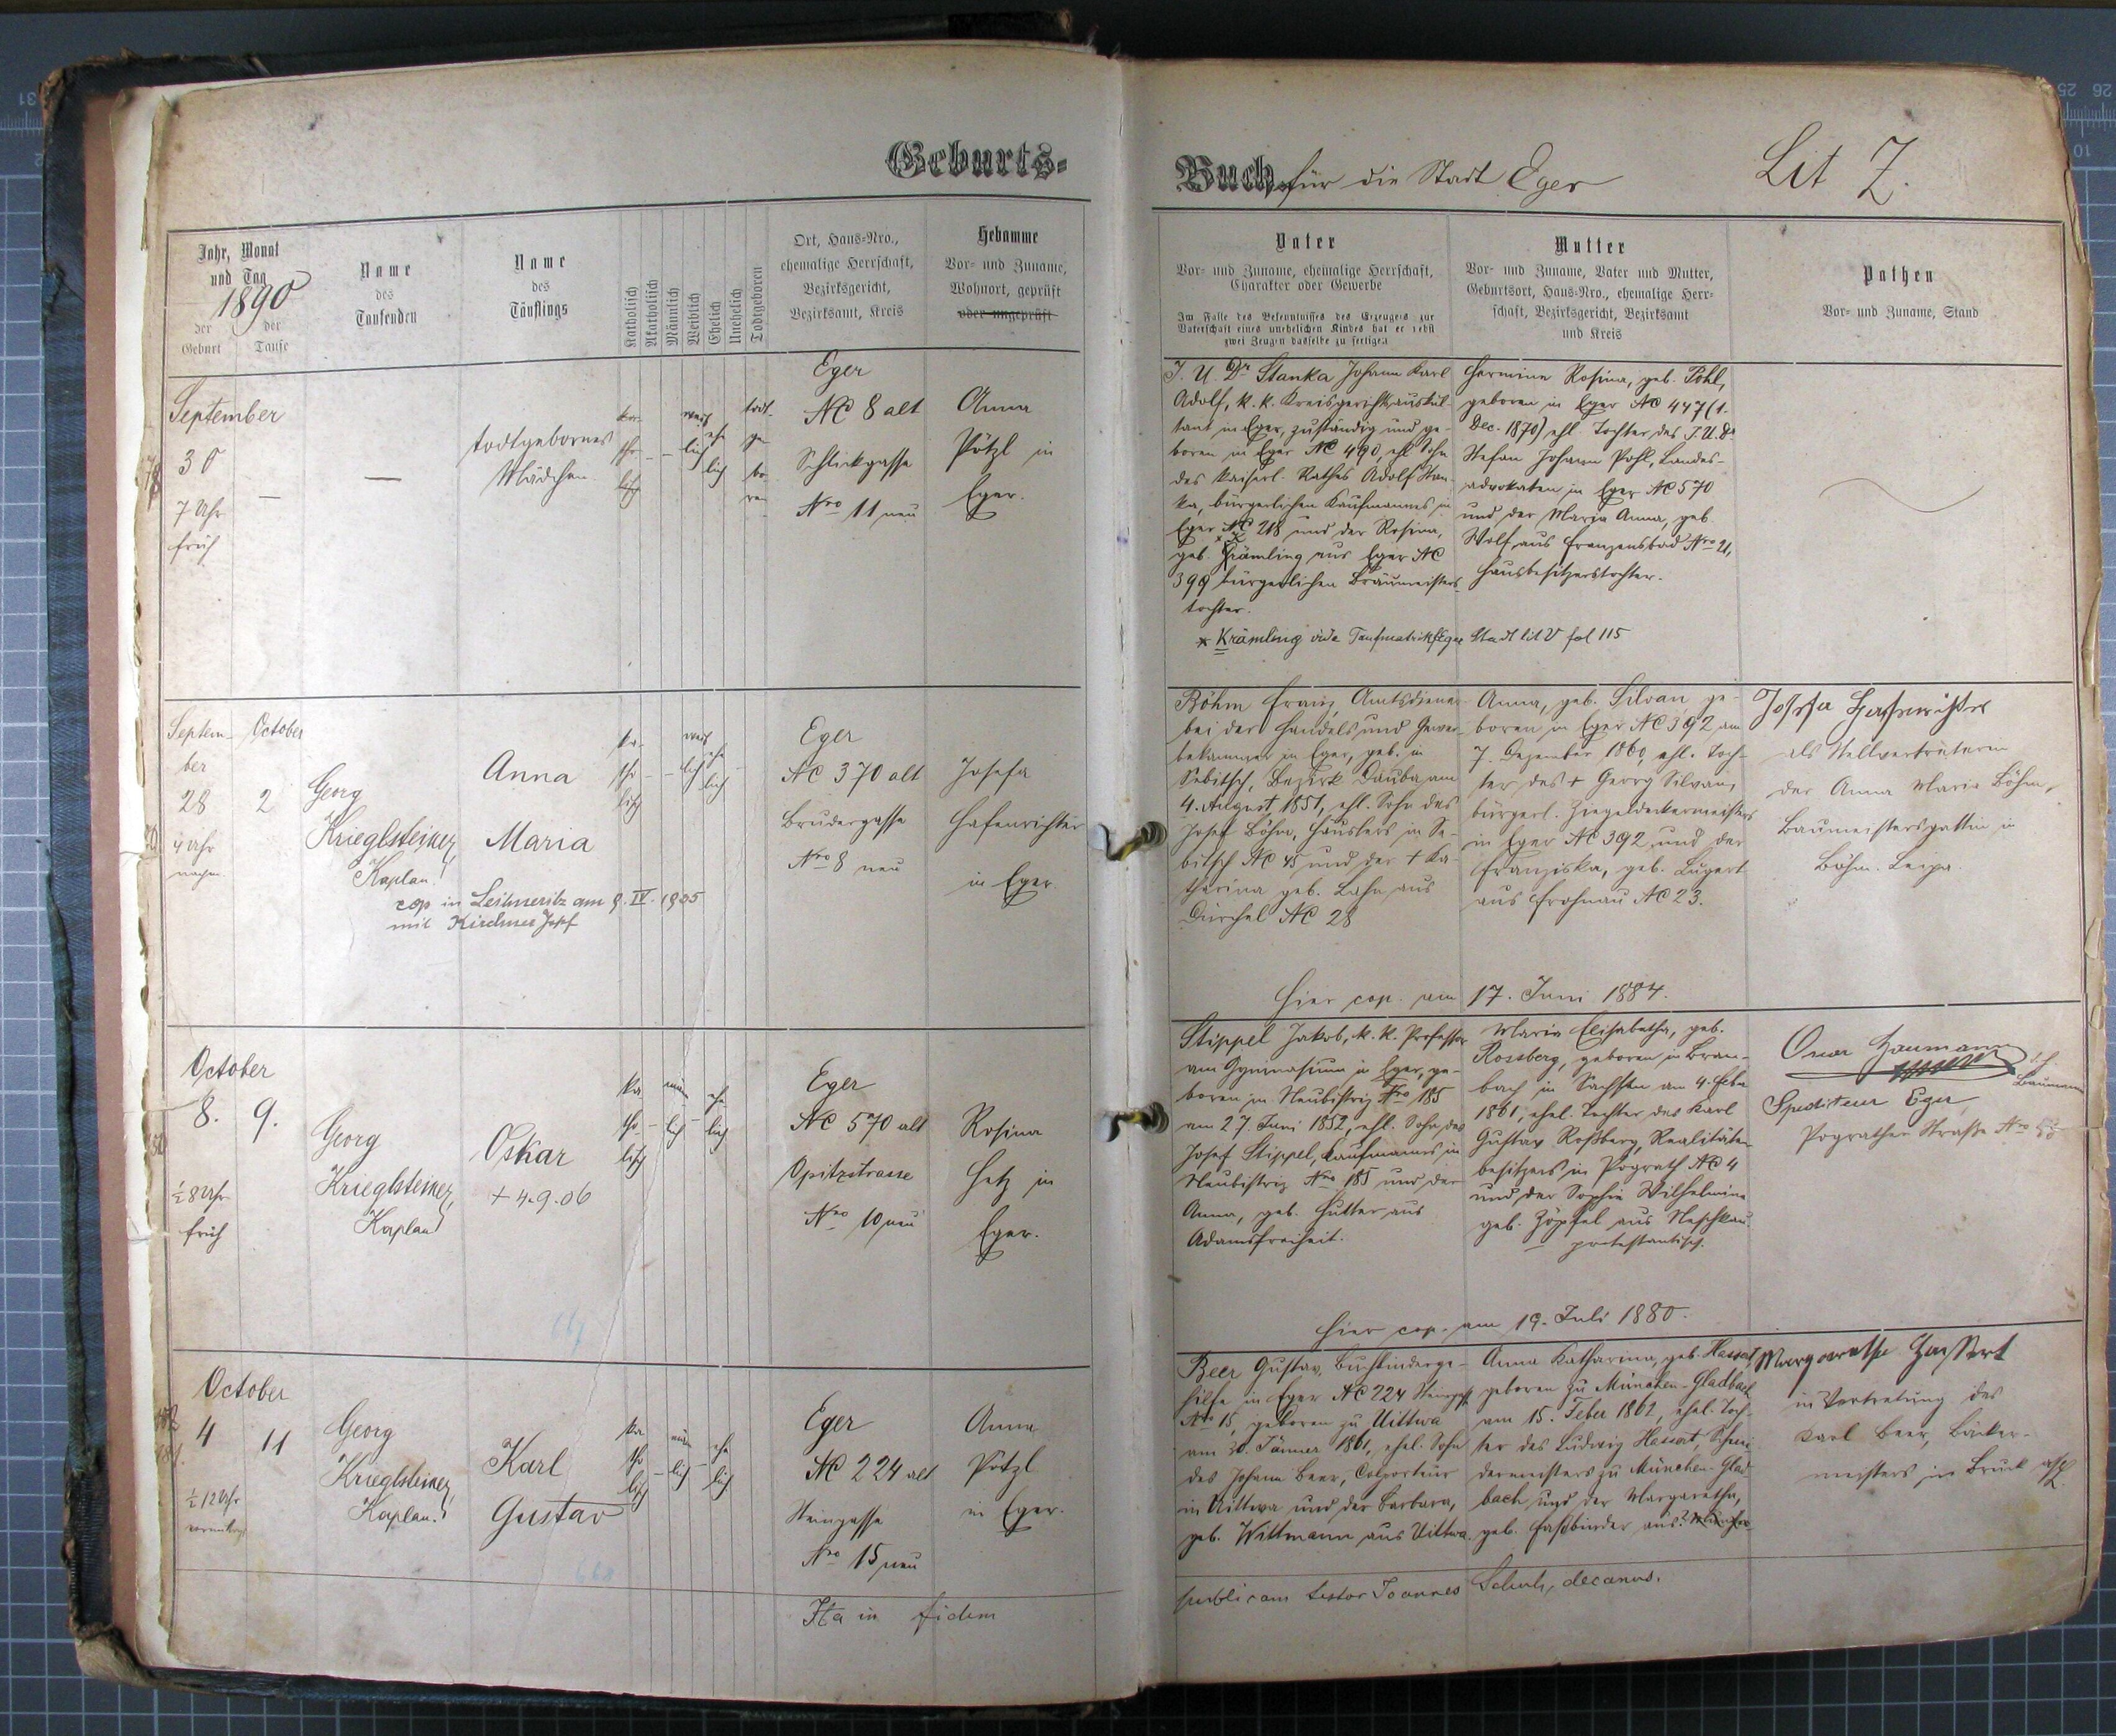 Geburts-
Buch für die Stadt Eger Lit Z.
Jahr, Monat
und Tag
1890
der Geburt
der Taufe
Name
des
Taufenden
Name
des
Täuflings
Katholisch
Akatholisch
Männlich
Weiblich
Ehelich
Unehelich
Todtgeboren
Ort, Haus-Nro.,
ehemalige Herrschaft,
Bezirksgericht,
Bezirksamt, Kreis
Hebamme
Vor- und Zuname,
Wohnort, geprüft
oder ungeprüft
Vater
Vor- und Zuname, ehemalige Herrschaft,
Charakter oder Gewerbe
Im Falle des Bekenntnisses des Erzeugers zur
Vaterschaft eines unehelichen Kindes hat er nebst
zwei Zeugen dasselbe zu fertigen
Mutter
Vor- und Zuname, Vater und Mutter,
Geburtsort, Haus-Nro., ehemalige Herr-
schaft, Bezirksgericht, Bezirksamt
und Kreis
Pathen
Vor- und Zuname, Stand
September
30
7 Uhr
früh
—
—
todtgebornes
Mädchen.
ka-
tho-
lisch
weib
lich
ehe
lich
todt-
ge
bo
ren
Eger
NC 8 alt
Schlickgasse
Nro 11 neu
Anna
Pötzl in
Eger.
J. U. Dr Stanka Johann Karl
Adolf, k. k. Kreisgerichtsauskul-
tant in Eger, zuständig und ge-
boren in Eger NC 490, ehl Sohn
des kaiserl. Rathes Adolf Stan-
ka, bürgerlichen Kaufmannes in
Eger NC 218 und der Rosina,
geb. Krämling aus Eger NC
399 bürgerlichen Bräumeisters-
tochter.
Hermine Rosina, geb. Pohl,
geboren in Eger NC 447 (1.
Dec. 1870) ehl. Tochter des J. U. Dr
Stefan Johann Pohl, Landes-
advokaten in Eger NC 570
und der Maria Anna, geb.
Wolf aus Franzensbad Nro 21,
Hausbesitzerstochter.
* Krämling vide Taufmatrik Eger Stadt lit V fol 115
Septem-
ber
28
4 Uhr
nachm.
October
2
Georg
Krieglsteiner,
Kaplan.
Anna
Maria
cop in Leitmeritz am 9. IV. 1925
mit Kirchner Josef
ka-
tho-
lisch
weib
lich
ehe
lich
Eger
NC 370 alt
Brudergasse
Nro 8 neu
Josefa
Hafenrichter
in Eger.
Böhm Franz, Amtsdiener
bei der Handels und Gewer-
bekammer in Eger, geb. in
Sebitsch, Bezirk Dauba am
4. August 1851, ehl. Sohn des
Josef Böhm, Häuslers in Se-
bitsch NC 45 und der + Ka-
tharina geb. Lahn aus
Durchel NC 28
Anna, geb. Silvan ge-
boren in Eger NC 392 am
7. Dezember 1860, ehl. Toch-
ter des + Georg Silvan,
bürgerl. Ziegeldeckermeisters
in Eger NC 392 und der
Franziska, geb. Lugert
aus Frohnau NC 23.
Josefa Hafenrichter
als Stellvertreterin
der Anna Maria Böhm,
Baumeistersgattin in
Böhm. Leipa
Hier cop. am 17. Juni 1884.
October
8.
9.
½ 8 Uhr
früh
Georg
Krieglsteiner,
Kaplan
Oskar
+ 4.9.06
ka
tho-
lisch
män
lich
ehe
lich
Eger
NC 570 alt
Opitzstrasse
Nro 10 neu
Rosina
Hetz in
Eger.
Stippel Jakob, k. k. Professor
am Gymnasium in Eger, ge-
boren in Neubistriz Nro 185
am 27. Juni 1852, ehl. Sohn des
Josef Stippel, Kaufmannes in
Neubistriz Nro 185 und der
Anna, geb. Hutter aus
Adamsfreiheit.
Maria Elisabetha, geb.
Rossberg, geboren in Bram-
bach in Sachsen am 4. Feber
1861, ehel. Tochter des Karl
Gustav Roßberg, Realitäten-
besitzers in Pograth NC 4
und der Sophie Wilhelmine
geb. Zöpfel aus Neschkau
protestantisch.
Oscar Baumann
Baumann
Spediteur Eger
Pograther Straße Nro
Hier cop. am 19. Juli 1880.
October
4
11
½ 12 Uhr
vormittag
Georg
Krieglsteiner,
Kaplan.
Karl
Gustav
668
ka
tho
lisch
män
lich
ehe
lich
Eger
NC 224 alt
Steingasse
Nro 15 neu
Anna
Pötzl
in Eger.
Beer Gustav, Buchbinderge-
hilfe in Eger NC 224 Steingasse
Nro 15, geboren zu Uittwa
am 30. Jänner 1861, ehel. Sohn
des Johann Beer, Colporteur
in Uittwa und der Barbara,
geb. Wittmann aus Uittwa.
Anna Katharina, geb. Hassat,
geboren zu München-Gladbach
am 15. Feber 1862, ehel. Toch-
ter des Ludwig Hassat, Schnei
dermeisters zu München-Glad
bach und der Margaretha,
geb. Faßbinder aus
Margarethe Hassert
in Vertretung des
Karl Beer, Bäcker-
meisters in Bruck
Ita in fidem
publicam testor Joannes Schuh, decanus.